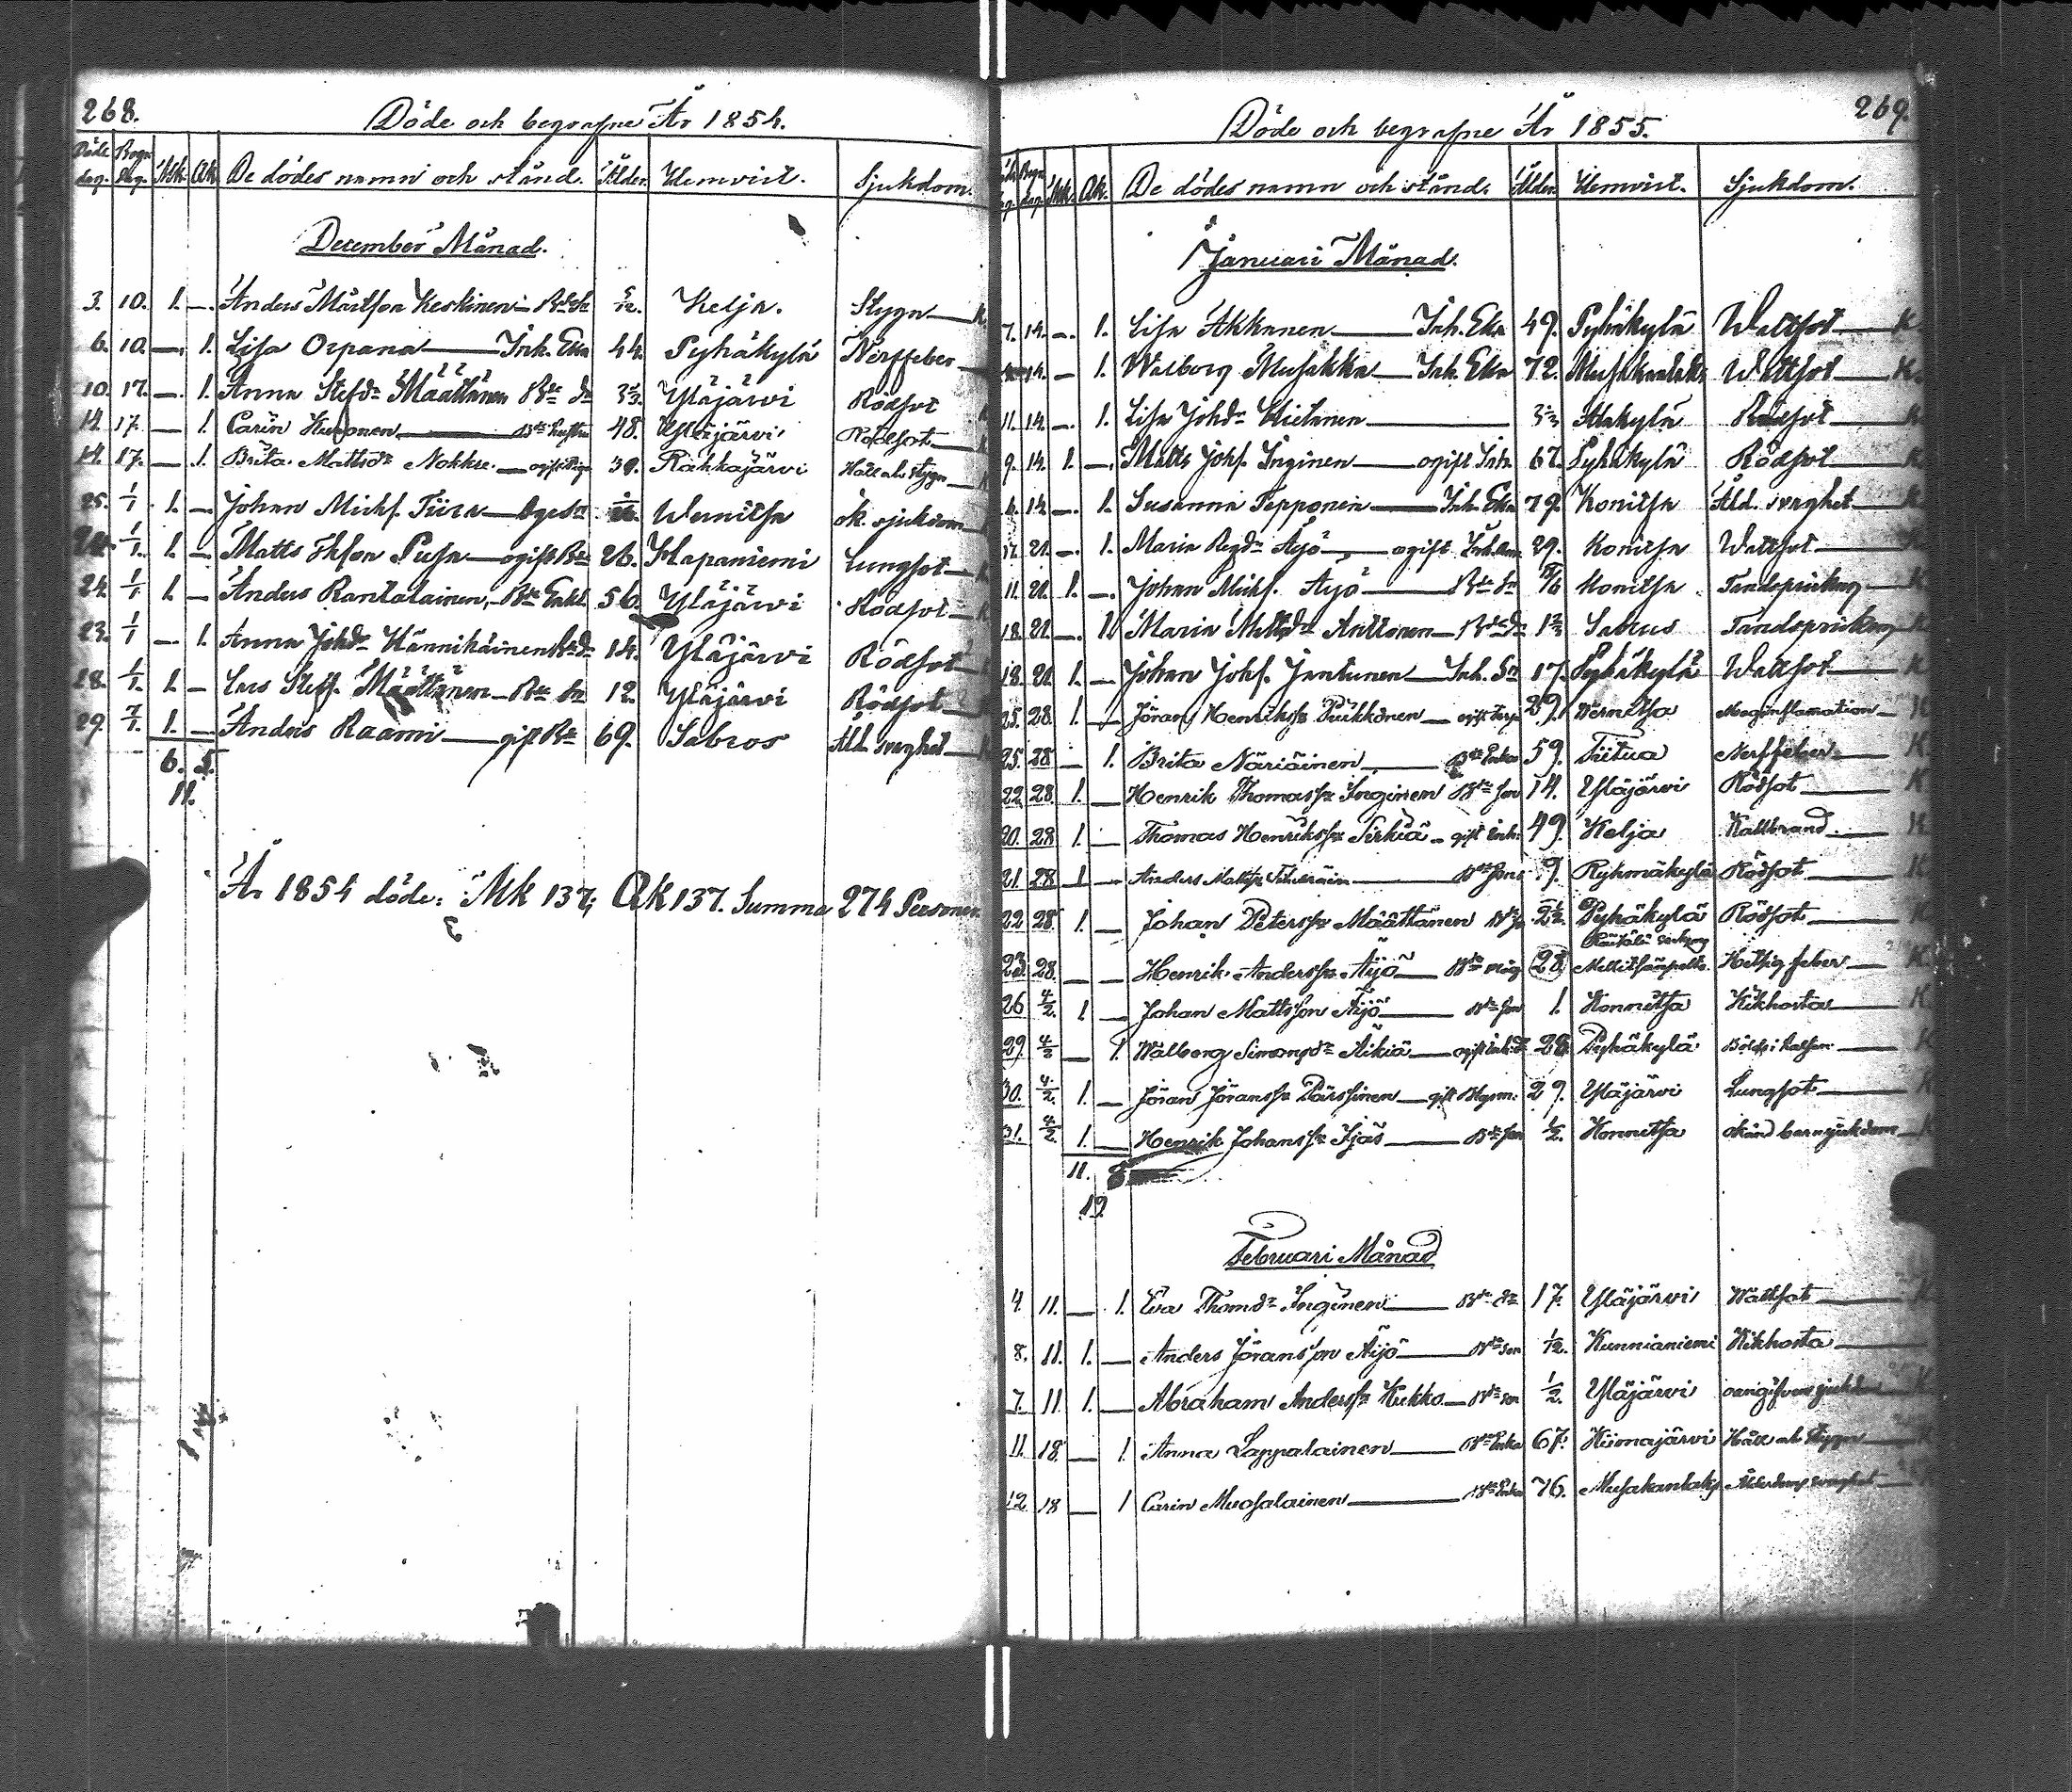 268.
Döde och begrafne År 1854.
Döde dag. Begr. dag. Mk. Qk. De dödes namn och stånd. Ålder. Hemvist. Sjukdom.
December Månad.
3. 10. 1. — Anders Mårtsson Keskinen 5/12. Kelja. Stygn
6. 10. — 1. Lisa Orpana — Inh. Eka 44. Pyhäkylä Nerffeber
10. 17. — 1. Anna Stefdr Määttänen Yläjärvi Rödsot
14. 17. — 1. Carin 48. Yläjärvi Rödsot
14. 17. — 1. Brita Mattsdr Nokka Rahkajärvi Håll och stygn
25. 1/1 1. — Johan Michs. Tiira Wernitsa ok. sjukdom
1/1. 1. — Matts Pusa — ogift Bde 26. Hapaniemi Lungsot
24. 1/1 1. — Anders Rantalainen, Bde Enkl. 56. Yläjärvi Rödsot
23. 1/1 — 1. Anna Johdr Hännikäinen 14. Yläjärvi Rödsot
18. 1/1. 1. — Lars Steffs. Määttänen — Bde Sn 12. Yläjärvi Rödsot
29. 7/1. 1. — Anders Raami — gift Bde 69. Sabros Åld. svaghet
6. 5.
11.
År 1854 döde: Mk 137; Qk 137. Summa 274 Personer.
269.
Döde och begrafne År 1855.
Begr. dag. Mk. Qk. De dödes namn och stånd. Ålder. Hemvist. Sjukdom.
Januari Månad.
7. 14. — 1. Lisa Akkanen — Inh. Eka 49. Pyhäkylä Wattsot K
14. — 1. Walborg Musakka — Inh. Eka 72. Musakanlaks Wattsot K.
11. 14. — 1. Lisa Johdr Hietanen Alakylä Rödsot K
9. 14. 1. — Matts Johs. Inginen — ogift Inh. 67. Pyhäkylä Rödsot K
14. — 1. Susanna Tepponen — Inh. Eka 79. Konitsa Åld. svaghet K
21. — 1. Maria Äijö — ogift 29. Konitsa Wattsot
11. 21. 1. — Johan Michs. Äijö — Bde Sn Konitsa Tandsprickning K
18. 21. — 1. Maria Mattsdr Anttonen — Bde dr Sabrus Tandsprickning
18. 21. 1. — Johan Johs. Jantunen — Inh. Sn 17. Pyhäkylä Wattsot K
25. 28. 1. — Jöran Henrikssn Puikkonen — 29. Wernitsa Maginflamation K
25. 28 — 1. Brita Näriäinen — Bde Enka 59. Tiitua Nerffeber K
22 28 1. — Henrik Thomassn Inginen Bde son 14. Yläjärvi Rödsot K
20. 28 1 — Thomas Henrikssn Sirkiä — gift Inh. 49. Kelja Kallbrand K
21. 28 1 — Anders Mattssn 9. Ryhmäkylä Rödsot K
22 28 1. — Johan Peterssn Määttänen 2 1/2. Pyhäkylä Rödsot K
23. 28. — — Henrik Anderssn Äijö — Bde måg (28) Hetsig feber K
26 4/2. 1 — Johan Mattsson Äijö — Bde son 1. Konnitsa Kikhosta K
29. 4/2 — 1. Wälborg Simonsdr Äikiä 28 Pyhäkylä K
30. 4/2. 1. — Jöran Jöranssn Pärssinen — gift 29. Yläjärvi Lungsot K
31. 4/2. 1. — Henrik Johanssn Ijäs — Bde son 1/2. Konnitsa okänd barnsjukdom
11. 8
19
Februari Månad
4. 11. — 1. Eva Thomdr Inginen — Bde dr 17. Yläjärvi Wattsot
8. 11. 1. — Anders Jöransson Äijö — Bde son 1/2. Kunnianiemi Kikhosta
7. 11 1. — Abraham Anderssn Kukko — Bde son 1/2. Yläjärvi oangifven sjukdom
11. 18. — 1. Anna Lappalainen — Bde Enka 67. Hiimajärvi Håll och Stygn
12 18 — 1 Carin Muosalainen — Bde Enka 76. Musakanlaks Ålderdoms svaghet